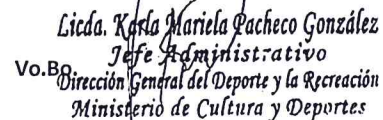 Licda. Karla Mariela Pacheco González
Jefe Administrativo
Vo.Bo.
Dirección General del Deporte y la Recreación
Ministerio de Cultura y Deportes